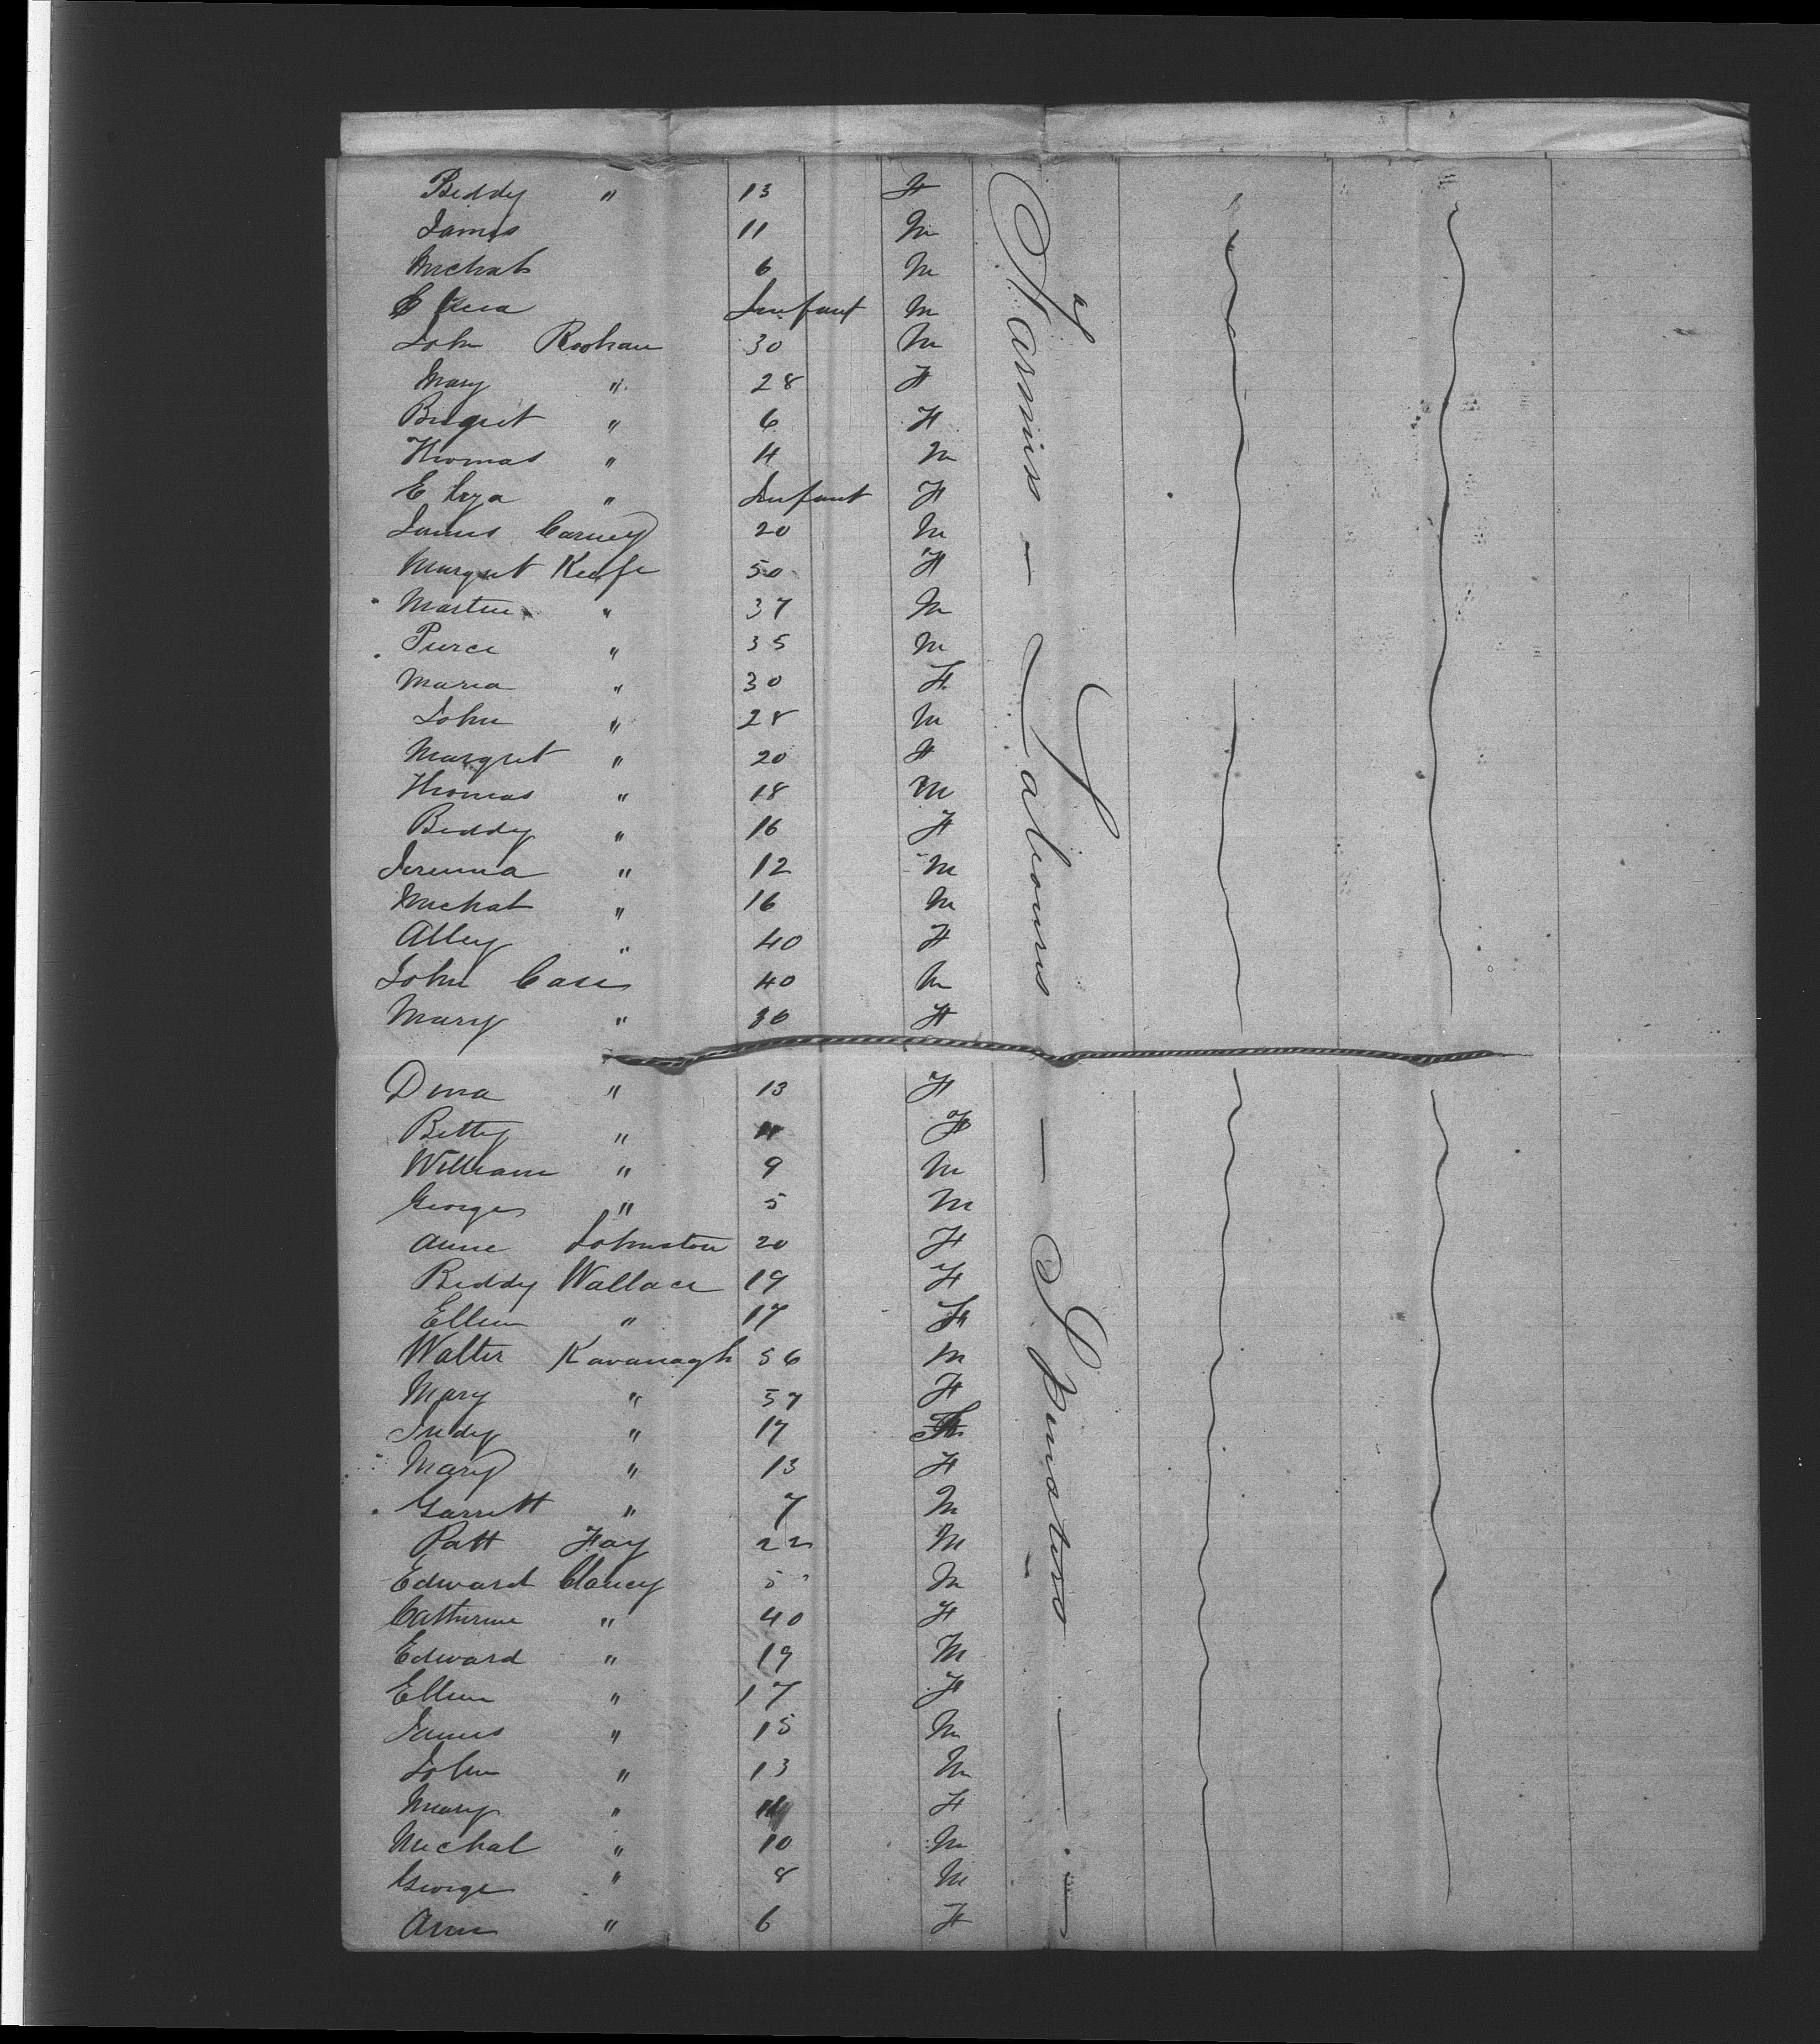 Biddy " 13 F
James 11 M
Michal 6 M
Infant M
John Roohan 30 M
Mary " 28 F
Brigret " 6 F
Thomas " 4 M
Eliza " Infant F
James Carney 20 M
Margret Keefe 50 F
Martin " 37 M
Pierce " 35 M
Maria " 30 F
John " 28 M
Margret " 20 F
Thomas " 18 M
Biddy " 16 F
" 12 M
Michal " 16 M
Alley " 40 F
John Case 40 M
Mary " 36 F
Dina " 13 F
Betty " 11 F
William " 9 M
George " 5 M
Anne Johnston 20 F
Biddy Wallace 19 F
Ellen " 17 F
Walter Kavanagh 56 M
Mary " 57 F
Judy " 17 F
Mary " 13 F
Garrett " 7 M
Patt Fay 22 M
Edward Clancy M
Catherine " 40 F
Edward " 19 M
Ellen " 17 F
James " 15 M
John " 13 M
Mary " 11 F
Michal " 10 M
George " 8 M
Ann " 6 F
Farmers — Labourers — Spinsters —